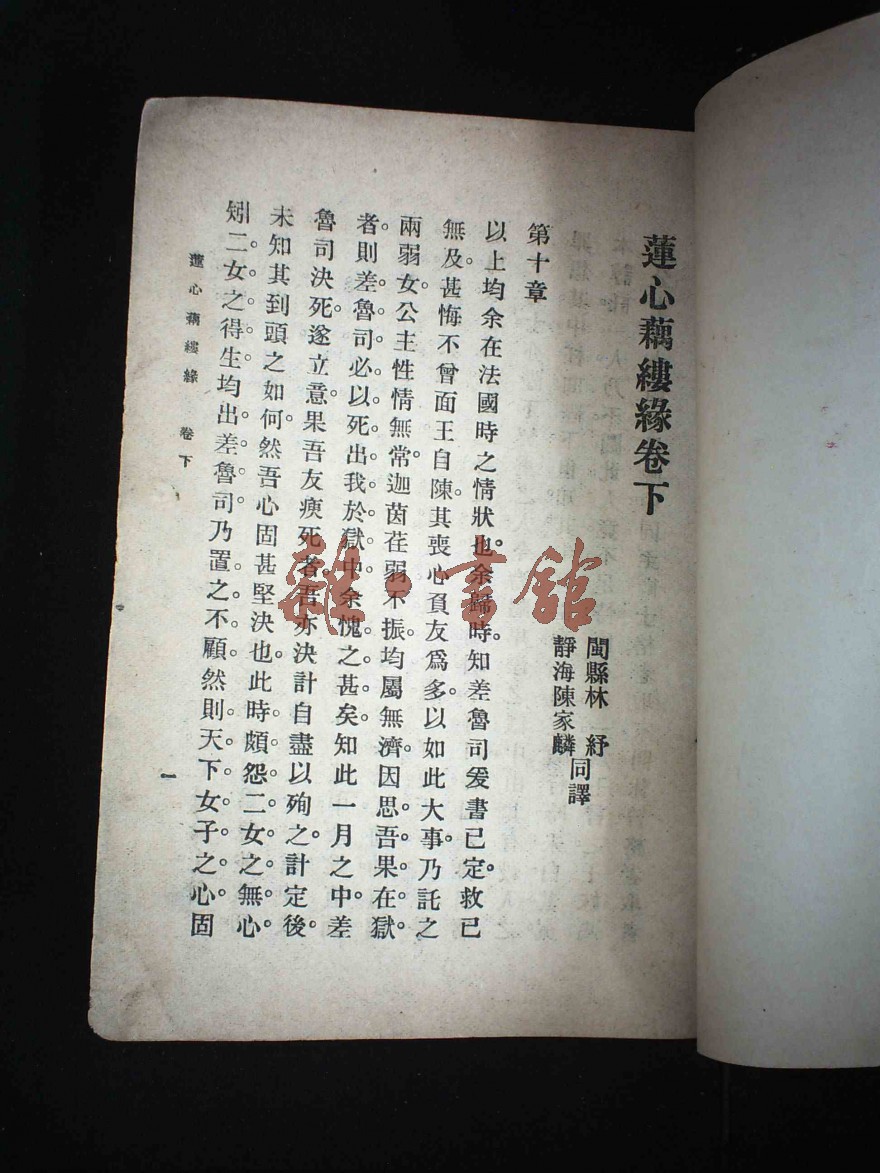 蓮心藕縷緣卷下
閩縣林 紓
靜海陳家麟
同譯
第十章
以上均余在法國時之情狀也。余歸時知差魯司爰書已定。救已
無及。甚悔不曾面王自陳。其喪心負友爲多。以如此大事。乃託之
兩弱女。公主性情無常。迦茵荏弱不振。均屬無濟。因思吾果在獄
者。則差魯司必以死出我於獄中。余愧之甚矣。知此一月之中。差
魯司決死。遂立意果吾友瘐死者。吾亦決計自盡以殉之。計定後。
未知其到頭之如何。然吾心固甚堅決也。此時頗怨二女之無心。
矧二女之得生。均出差魯司。乃置之不顧。然則天下女子之心。固
蓮心藕縷緣 卷下
一
雜·書館